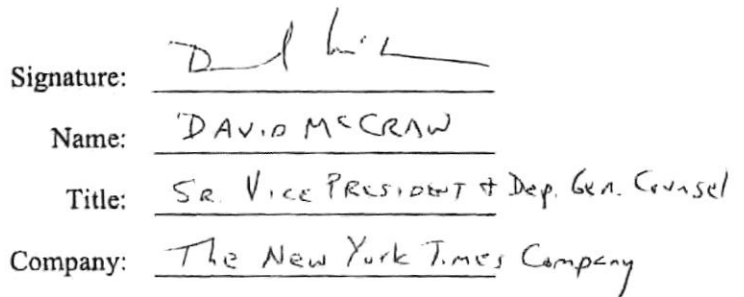 Signature:
Name: DAVID McCRAW
Title: SR. VICE PRESIDENT + Dep. Gen. Counsel
Company: The New York Times Company